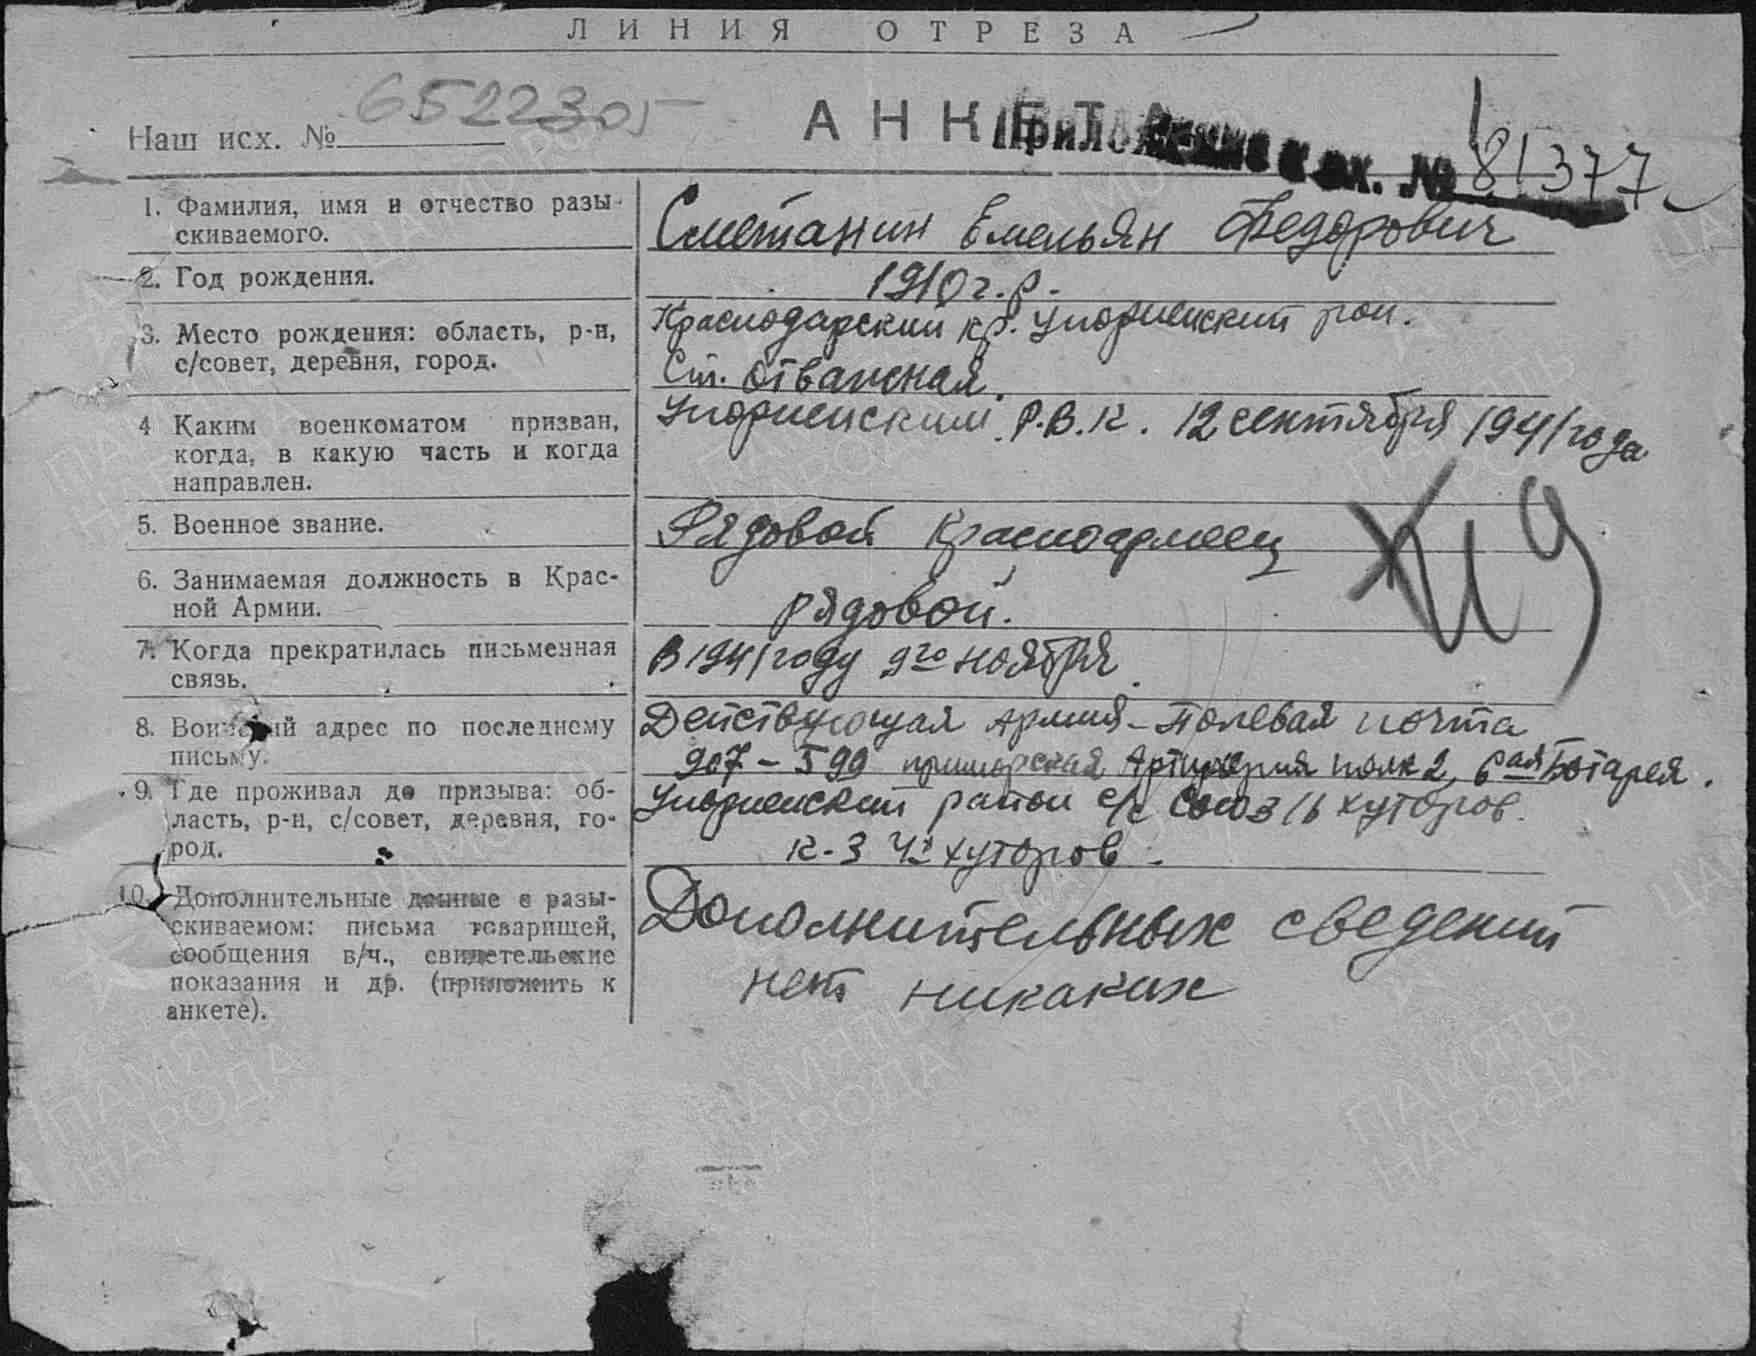 ЛИНИЯ ОТРЕЗА
Наш исх. № 652230
АНКЕТА
Приложение к вх. № 81377
1. Фамилия, имя и отчество разы-
скиваемого.
Сметанин Емельян Федорович
2. Год рождения.
1910 г.р.
3. Место рождения: область, р-н,
с/совет, деревня, город.
Краснодарский кр. Упорненский рон.
Ст. Отважная.
4 Каким военкоматом призван,
когда, в какую часть и когда
направлен.
Упорненским Р.В.К. 12 сентября 1941 года
5. Военное звание.
Рядовой Красноармеец
6. Занимаемая должность в Крас-
ной Армии.
рядовой.
7. Когда прекратилась письменная
связь.
В 1941 году 9го ноября
8. Воинский адрес по последнему
письму.
Действующая Армия - Полевая почта
907 - 599 приморская Артилерия полк 2, 6аяБотарея.
9. Где проживал до призыва: об-
ласть, р-н, с/совет, деревня, го-
род.
Упорненский район с/с Союз 16 хуторов.
к-з 4х хуторов.
10. Дополнительные данные о разы-
скиваемом: письма товарищей,
сообщения в/ч., свидетельские
показания и др. (приложить к
анкете).
Дополнительных сведений
нет никаких
ПАМЯТЬ
НАРОДА